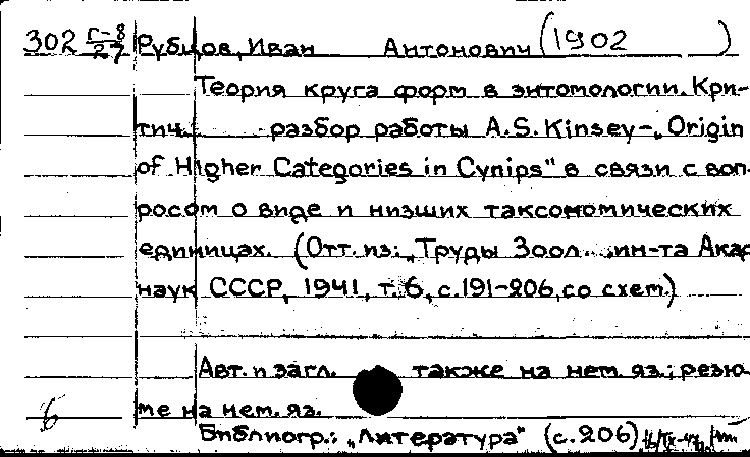 302 Г-8/27 Рубцов, Иван Антонович (1902 )
Теория круга форм в энтомологии. Кри-
тич. разбор работы A.S. Kinsey-„Origin
of Higher Categories in Cynips" в связи с воп-
росом о виде и низших таксономических
единицах. (Отт. из: „Труды Зоол. ин-та Акад
наук СССР, 1941, т. 6, с. 191-206, со схем.)
Авт. и загл. также на нем. яз.; резю-
ме на нем. яз.
Библиогр.: „Литература" (с. 206)
б